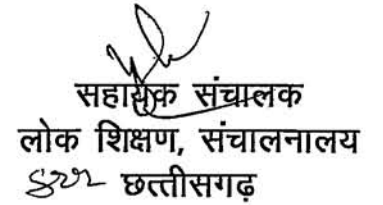 सहायक संचालक
लोक शिक्षण, संचालनालय
छत्तीसगढ़